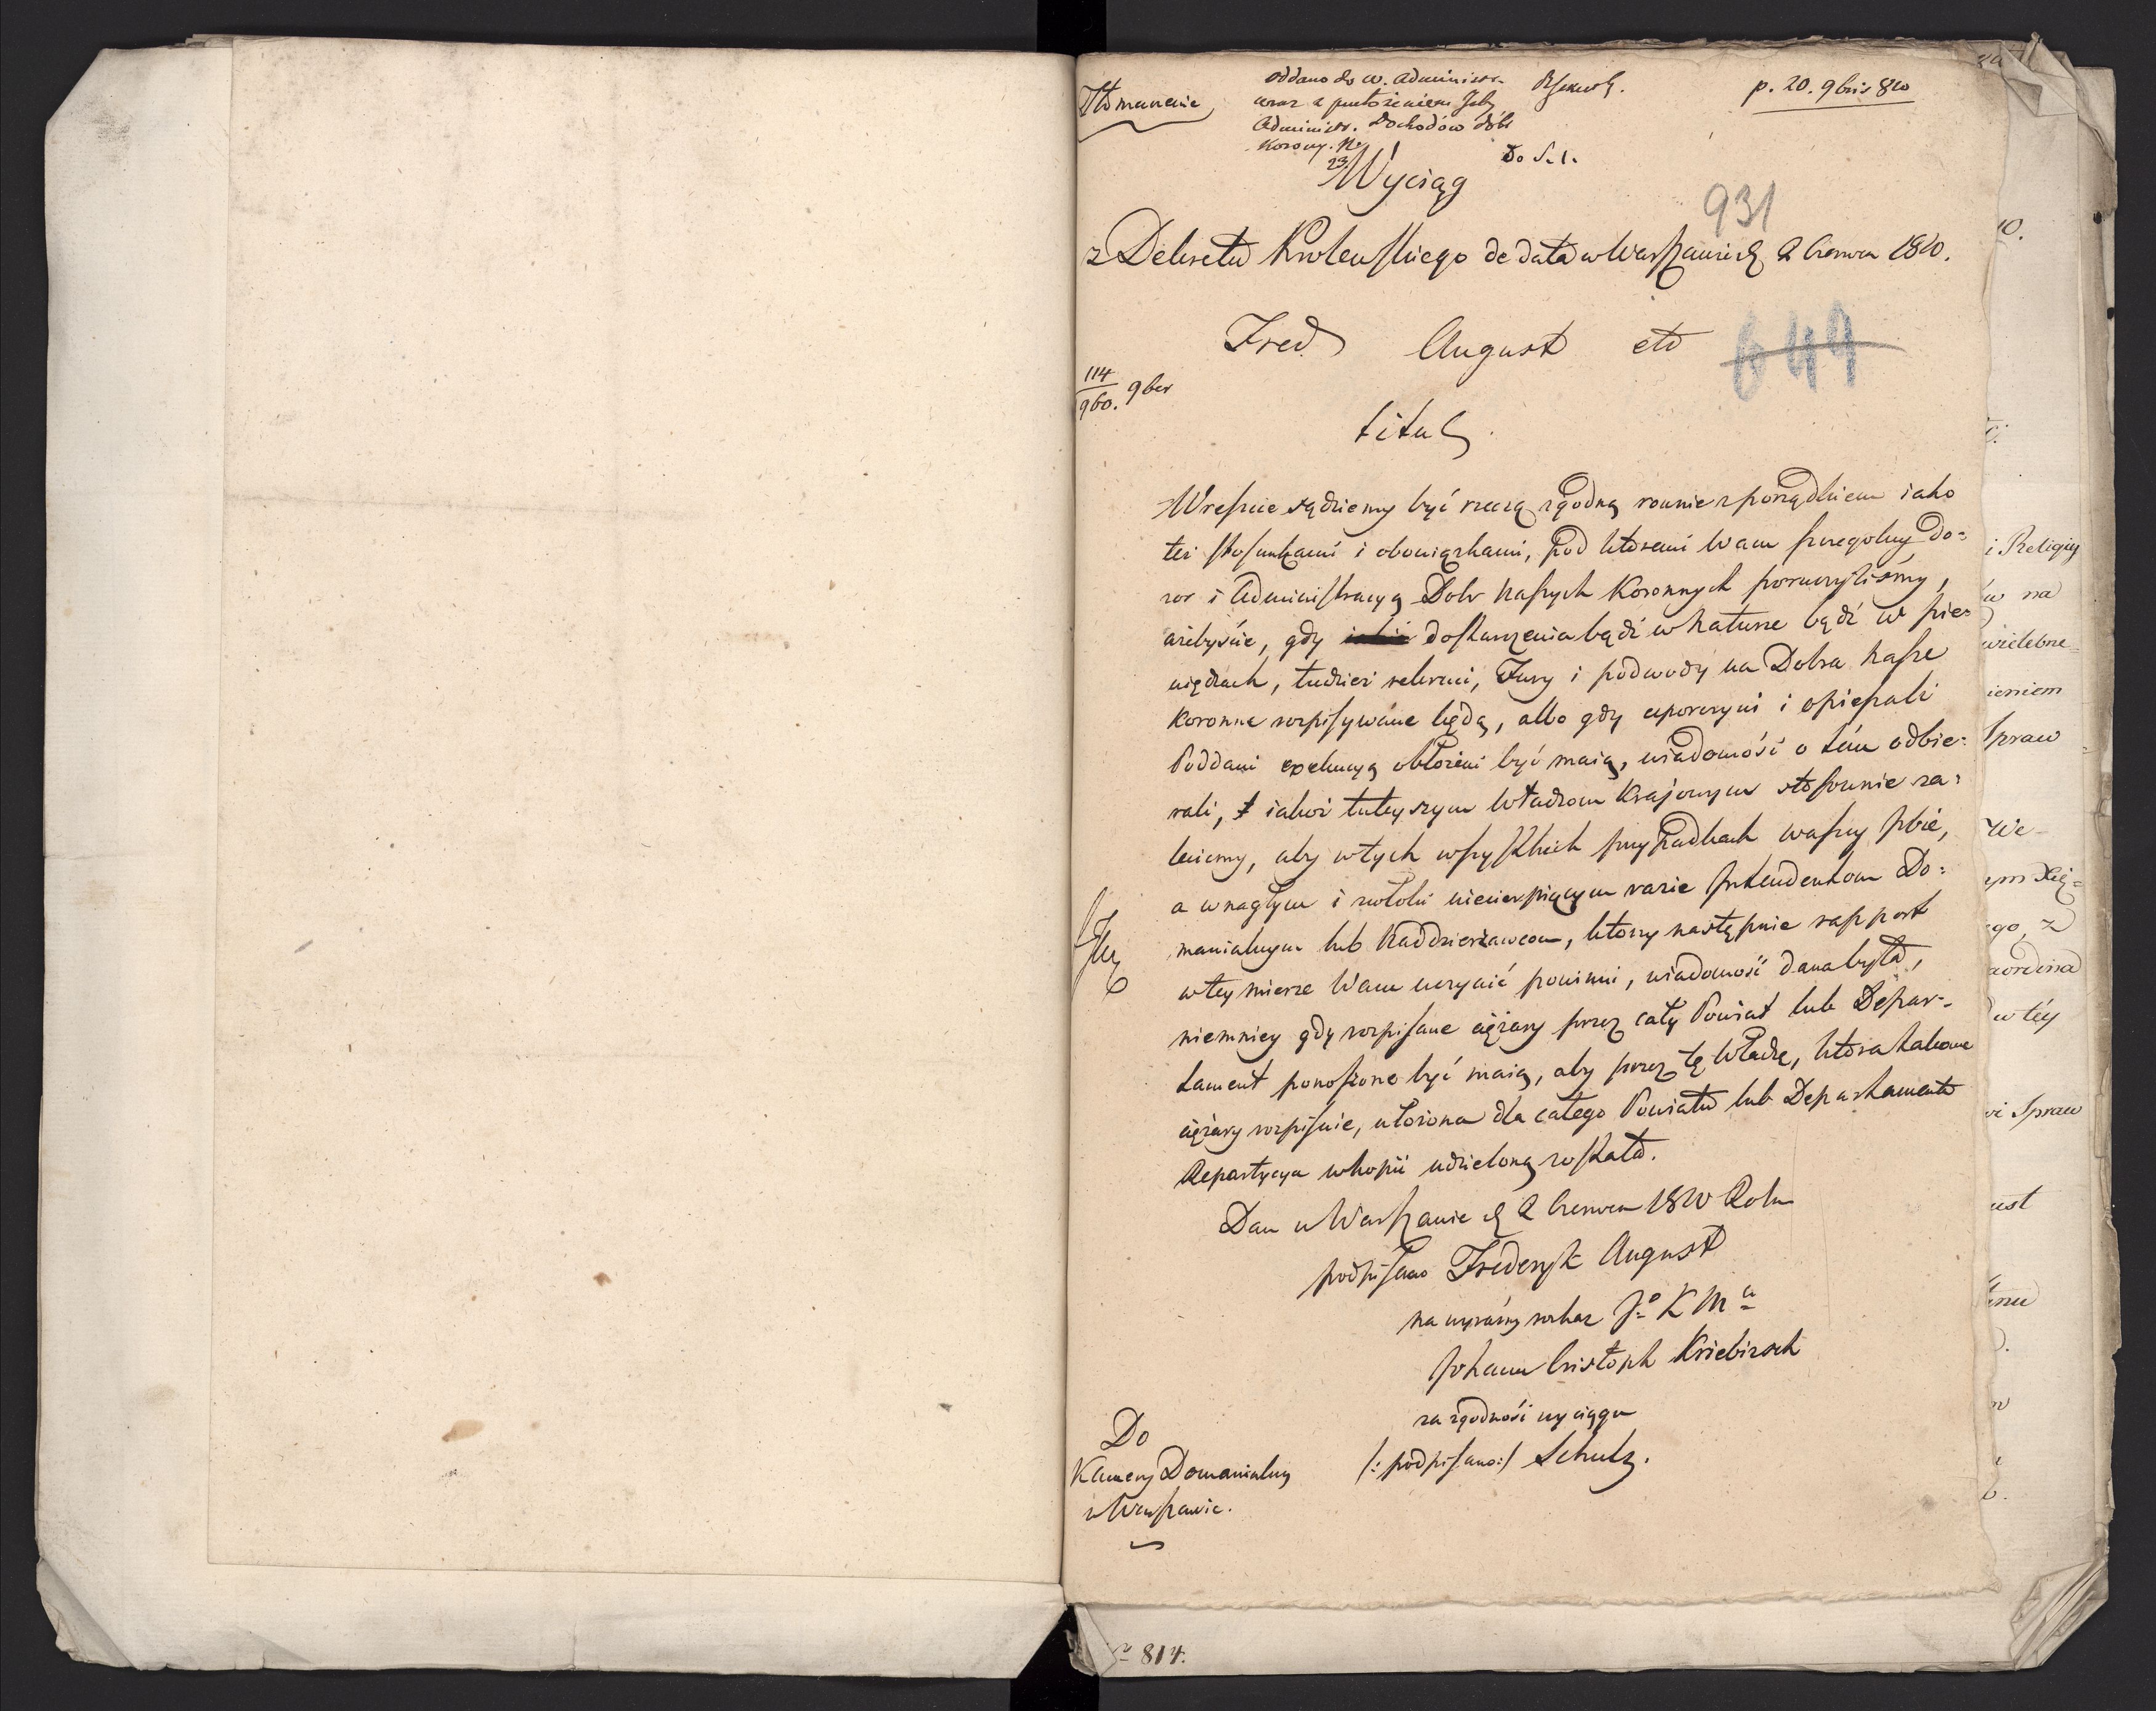 Tłomaczenie
oddano do w. Administr.
wraz z przełożeniem Izby
Administr. Dochodów dóbr
Korony. No
23.
p. 20. 9bris 810
Do S. 1.
Wyciąg
931
z Dekretu Krolewskiego de dato w Warszawie d. 2 Czerwca 1810.
Fred. August etc
649
114
960. 9ber
titul.
Wreszcie sądziemy być rzeczą zgodną rownie z porządkiem iako
też stosunkami i obowiązkami, pod ktoremi Wam szczegolny do=
zor i Administracyą Dobr Naszych Koronnych poruczyliśmy,
ażebyście, gdy dostarczenia bądź w naturze bądź w pie=
niędzach, tudzież rekruci, Fury i podwody na Dobra Nasze
Koronne rozpisywane będą, albo gdy uporczywi i opieszali
Poddani exekucyą obłożeni być maią, wiadomość o tém odbie=
rali, iakoż tuteyszym Władzom Krajowym stosownie za=
leciemy, aby w tych wszystkich przypadkach waszey Izbie,
a w nagłym i zwłoki niecierpiącym razie Intendentom Do=
manialnym lub Naddzierżawcom, ktorzy następnie rapport
w tey mierze Wam uczynić powinni, wiadomość dana była,
niemniey gdy rozpisane ciężary przez cały Powiat lub Depar=
tament ponoszone być maią, aby przez tę Władzę, ktora takowe
ciężary rozpisuie, ułożona dla całego Powiatu lub Departamentu
Repartycya w kopii udzieloną została.
Dan w Warszawie d. 2 Czerwca 1810 Roku
podpisano Frederyk August
na wyraźny rozkaz Jo K Mci
Johann Cristoph Kriebitzsch
za zgodność wyciągu
/: podpisano :/ Schulz.
Do
Kamery Domanialney
w Warszawie.
814.
10.
i Religiy
w na
wielebne=
ieniem
Spraw
We-
ym Xię=
ego, z
w téy
vi Spraw
ust